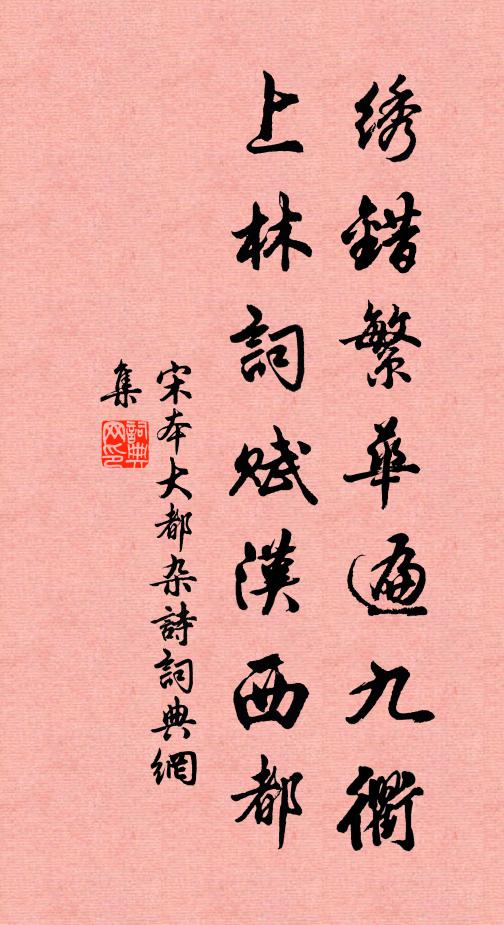 绣錯繁華遍九衢
上林詞赋漢西都
宋本大都杂詩詞典網
集
詞典網印